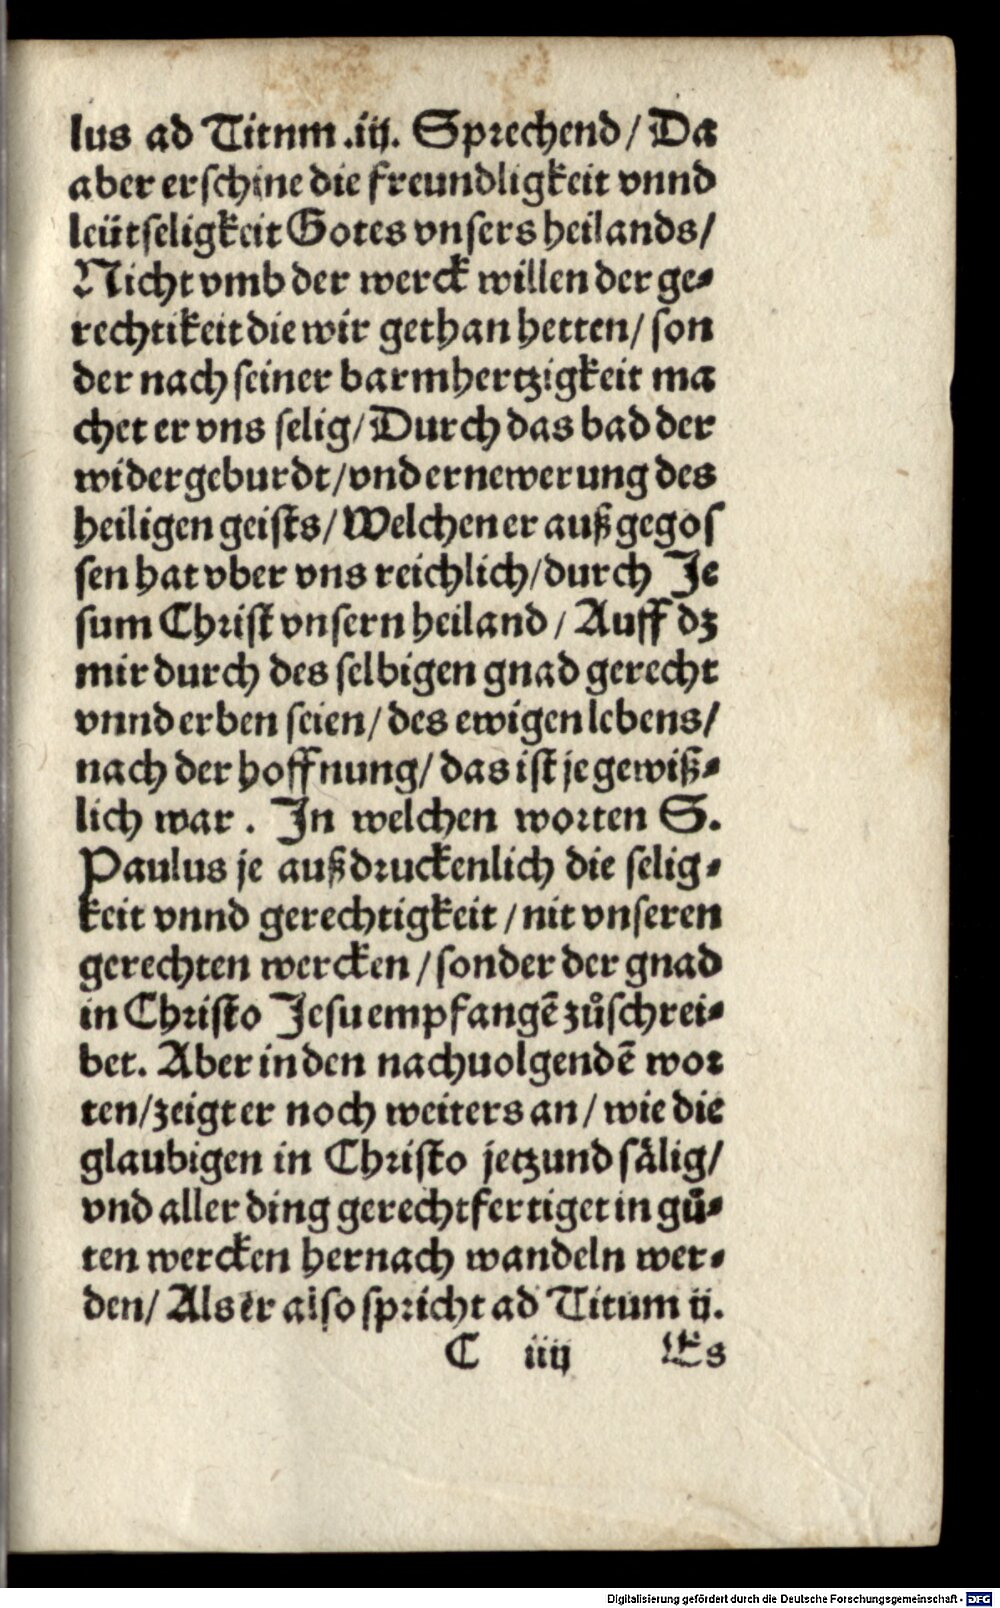 lus ad Titnm .iij. Sprechend / Da
aber erschine die freundligkeit vnnd
leütseligkeit Gotes vnsers heilands /
Nicht vmb der werck willen der ge⸗
rechtikeit die wir gethan hetten / son
der nach seiner barmhertzigkeit ma
chet er vns selig / Durch das bad der
widergeburdt / vnd ernewerung des
heiligen geists / Welchen er außgegos
sen hat vber vns reichlich / durch Je
sum Christ vnsern heiland / Auff dz
mir durch des selbigen gnad gerecht
vnnd erben seien / des ewigen lebens /
nach der hoffnung / das ist je gewiß⸗
lich war . In welchen worten S.
Paulus je außdruckenlich die selig⸗
keit vnnd gerechtigkeit / nit vnseren
gerechten wercken / sonder der gnad
in Christo Jesu empfangē zůschrei⸗
bet. Aber in den nachuolgendē wor
ten / zeigt er noch weiters an / wie die
glaubigen in Christo jetzund sälig /
vnd aller ding gerechtfertiget in gů⸗
ten wercken hernach wandeln wer⸗
den / Als er also spricht ad Titum ij.
C iiij Es
Digitalisierung gefördert durch die Deutsche Forschungsgemeinschaft - DFG